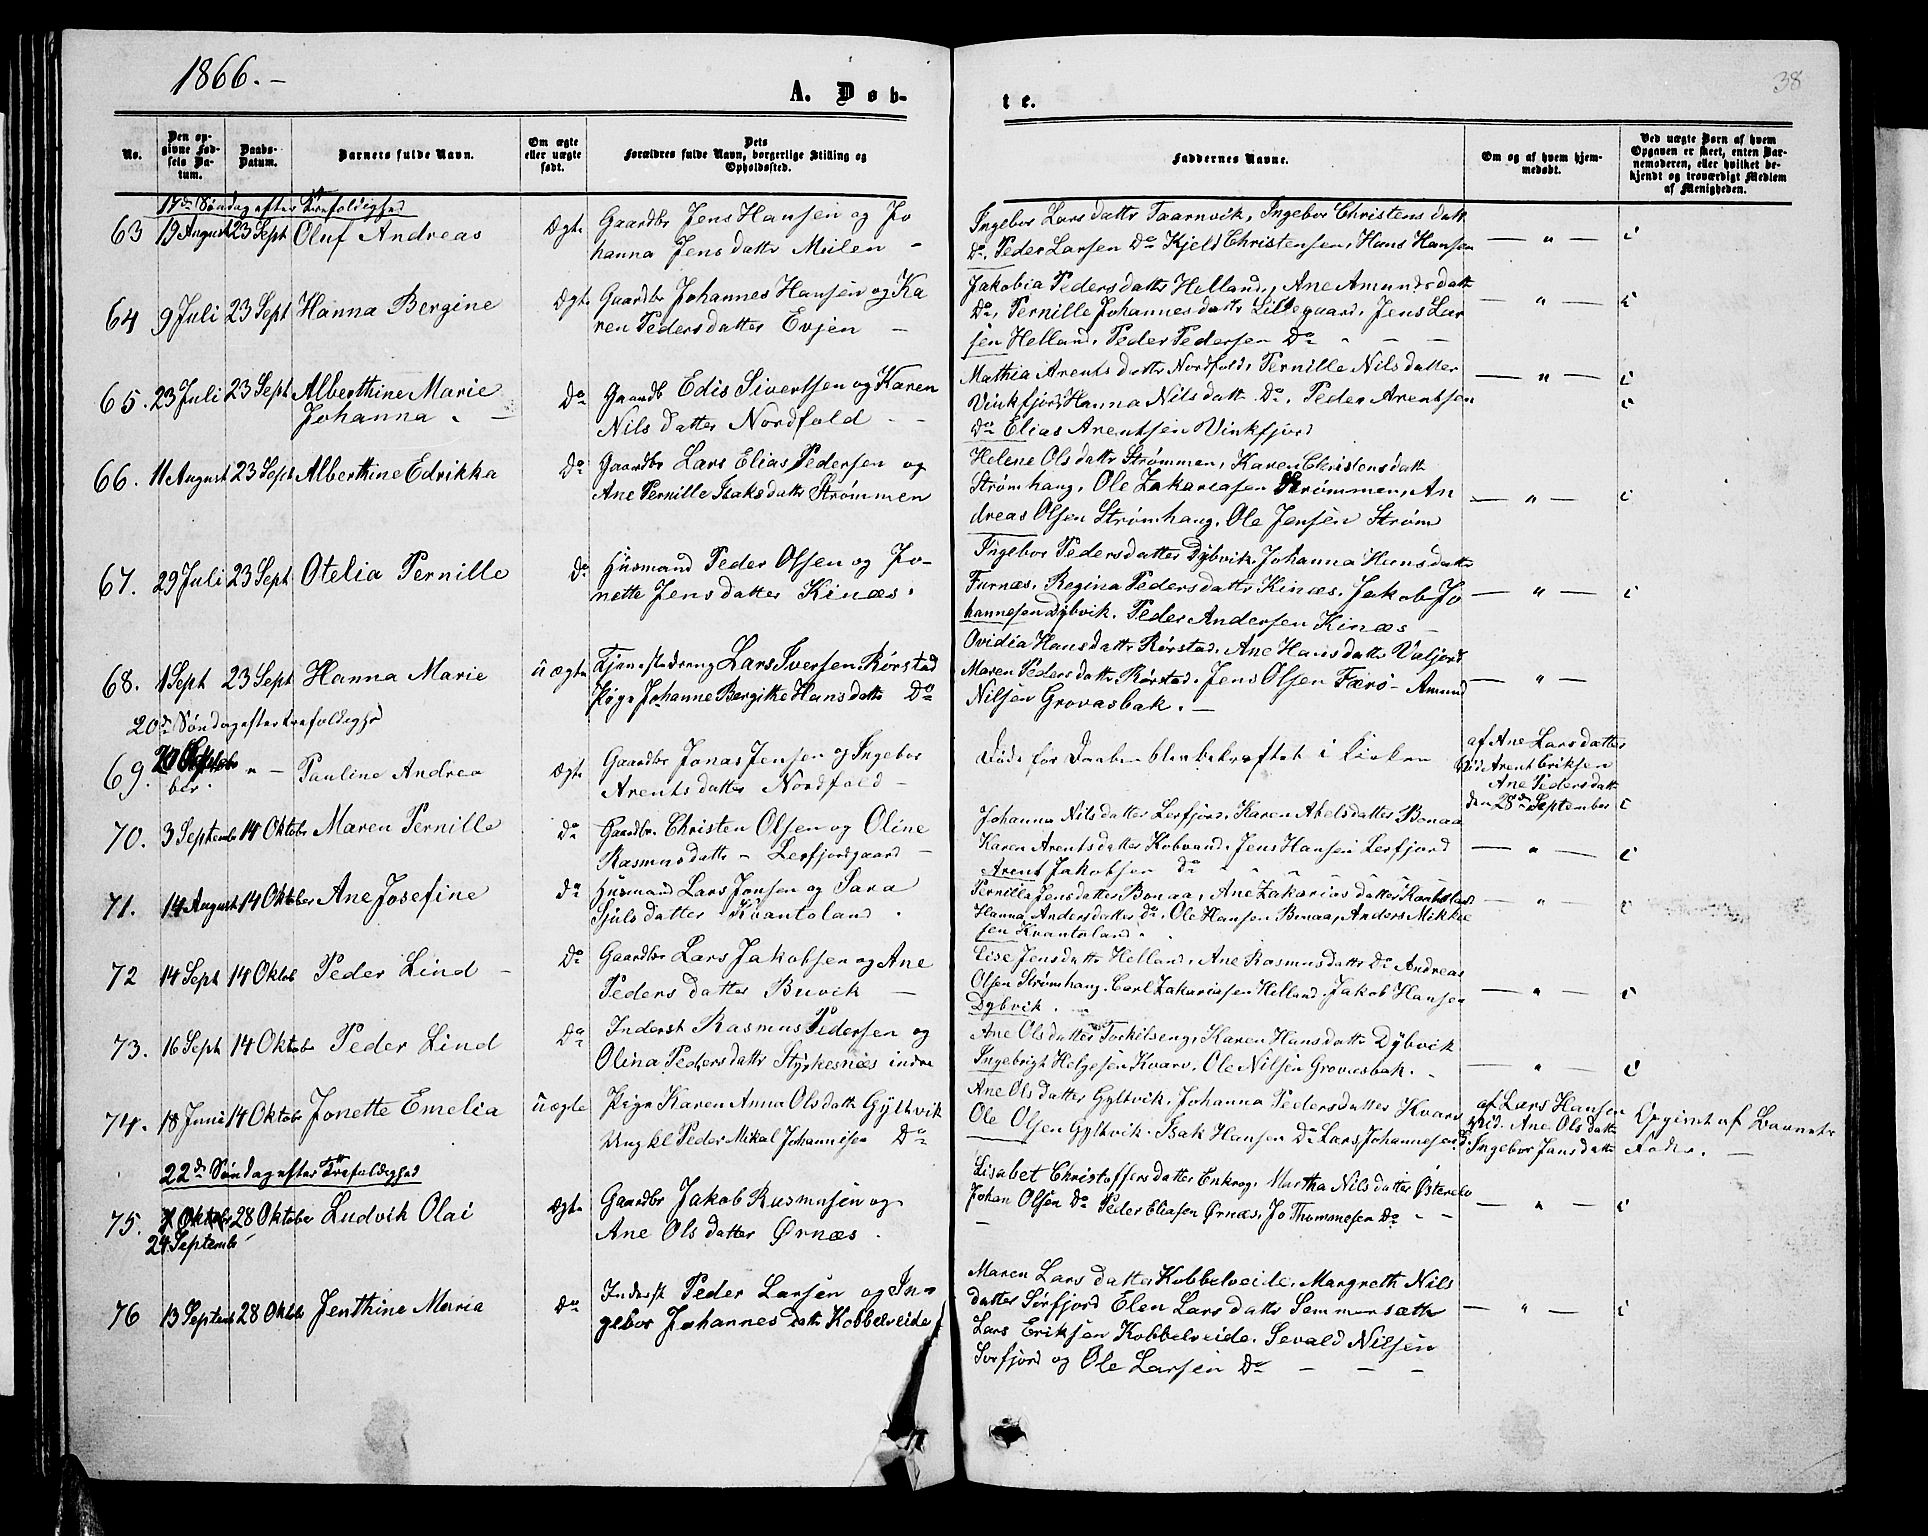 1866.-
38
A. Døb-
te.
No.
Den op-
givne Fød-
sels Da-
tum.
Daabs-
Datum.
Barnets fulde Navn.
Om ægte
eller uægte
født.
Dets
Forældres fulde Navn, borgerlige Stilling og
Opholdssted.
Faddernes Navne.
Om og af hvem hjem-
medøbt.
Ved uægte Børn af hvem
Opgaven er skeet, enten Bar-
nemoderen, eller hvilket be-
kjendt og troværdigt Medlem
af Menigheden.
17de Søndag efter Trefoldighed
63 19 August 23 Sept Oluf Andreas Ægte Gaardbr Jens Hansen og Jo
hanna Jensdatter Mulen -
Ingebor Larsdattr Taarnvik, Ingebor Christensdatt
Do, Peder Larsen Do Kjeld Christensen, Hans Hansen
64 9 Juli 23 Sept Hanna Bergine Ægte Gaardbr Johannes Hansen og Ka
ren Pedersdatter Evjen -
Jakobia Pedersdatter Helland, Ane Amundsdatt
Do, Pernille Johannesdattr Lillegaard, Jens Lar
sen Helland, Peder Pedersen Do - - -
65. 23 Juli 23 Sept Alberthine Marie
Johanna. -
Do Gaardb Edis Sivertsen og Karen
Nilsdatter Nordfold - -
Mathia Arentsdattr Nordfold, Pernille Nilsdatter
Vinkfjord, Hanna Nilsdatt Do, Peder Arentsen
Do Elias Arentsen Vinkfjord
66. 11 August 23 Sept Alberthine Edrikka Do Gaardbr Lars Elias Pedersen og
Ane Pernille Isaksdatter Strømmen
Helene Olsdattr Strømmen, Karen Christensdatt
Strømhaug, Ole Zakariasen Strømmen, An
dreas Olsen Strømhaug, Ole Jensen Strøm
67. 29 Juli 23 Sept Otelia Pernille Do Husmand Peder Olsen og Jo-
nette Jensdatter Kinæs.
Ingebor Pedersdatter Dybvik, Johanna Hansdattr
Furnæs, Regina Pedersdatter Kinæs, Jakob Jo
hannesen Dybvik, Peder Andersen Kinæs -
68. 1 Sept 23 Sept Hanna Marie uægte Tjenestedreng Lars Iversen Rørstad
Pige Johanne Bergitte Hansdattr Do
Ovidia Hansdattr Rørstad, Ane Hansdattr Valjord
Maren Pedersdattr Rørstad, Jens Olsen Færø - Amund
Nilsen Grovasbak. -
20de Søndag efter Trefoldighed
69. ber. " - Pauline Andrea ægte Gaardbr Jonas Jensen og Ingebor
Arentsdatter Nordfold -
Døde før Daaben blev bekræftet i Kirken
af Ane Larsdatter
Vid. Arent Eriksen
Ane Pedersdatt
den 28de September
70. 3 Septembr 14 Oktobr Maren Pernille Do Gaardbr. Christen Olsen og Oline
Rasmusdattr - Lerfjordgaard -
Johanna Nilsdatter Lerfjord, Karen Abelsdatter Bonaa
Karen Arentsdatter Kobvand, Jens Hansen Lerfjord
Arent Jakobsen do - - -
71. 14 August 14 Oktober Ane Josefine Do Husmand Lars Jonsen og Sara
Sjulsdatter Kvantoland.
Pernilla Jensdatter Bonaa, Ane Zakariasdatter
Hanna Andersdatter do, Ole Hansen Bonaa, Anders Mikkel
sen Kvantoland.
72 14 Sept 14 Oktob Peder Lind - Do Gaardbr Lars Jakobsen og Ane
Pedersdatter Buvik -
Lise Jensdattr Helland, Ane Rasmusdattr Do Andreas
Olsen Strømhaug, Carl Zakariasen Helland, Jakob Hansen
Dybvik. -
73. 16 Sept 14 Oktobr Peder Lind Do Inderst Rasmus Pedersen og
Olina Pedersdattr Styrkesnæs indre
Ane Olsdatter Torkilseng, Karen Hansdattr Dybvik
Ingebrigt Helgesen Kvarv, Ole Nilsen Grovasbak. -
74. 18 Juni 14 Oktobr Jonette Emelia uægte Pige Karen Anna Olsdatt Gyltvik
Ungkl Peder Mikal Johannesen Do
Ane Olsdatter Gyltvik, Johanna Pedersdatter Kvarv
Ole Olsen Gyltvik, Isak Hansen Do Lars Johannesen Do
af Lars Hansen
Vid. Ane Olsdattr
Ingebor Jansdattr
Opgivet af Barnets
Fader. -
22de Søndag efter Trefoldighed
75. 28 Oktober Ludvik Olai ægte Gaardbr Jakob Rasmusen og
24 Septembr
Ane Olsdatter Ørnæs.
Lisabet Christoffersdatter Enkrog, Martha Nilsdatter
Johan Olsen Do Peder Eliasen Ørnæs, Jo Thommesen Do - -
76 13 Septemb 28 Oktob Jenthine Maria Do Inderst Peder Larsen og In-
gebor Johannesdattr Kobbelveide
Maren Larsdatter Kobbelveide, Margreth Nils
datter Sørfjord Elen Larsdattr Sommersæth
Lars Eriksen Kobbelveide, Sevald Nilsen
Sørfjord og Ole Larsen Do - - -